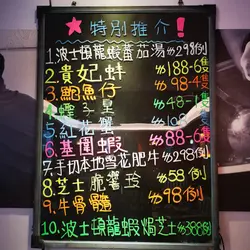 特別推介!
1.波士頓龍蝦蕃茄湯$298例
2.貴妃蚌 $188-6隻
3.鮑魚仔 $48-4隻
4.子皇 $48-1隻
5.紅花蟹
6.基圍蝦 $88-
7.手切本地雪花肥牛$298例
8.芝士脆 $58例
9.牛骨髓 $98例
10.波士頓龍蝦焗芝士$388例